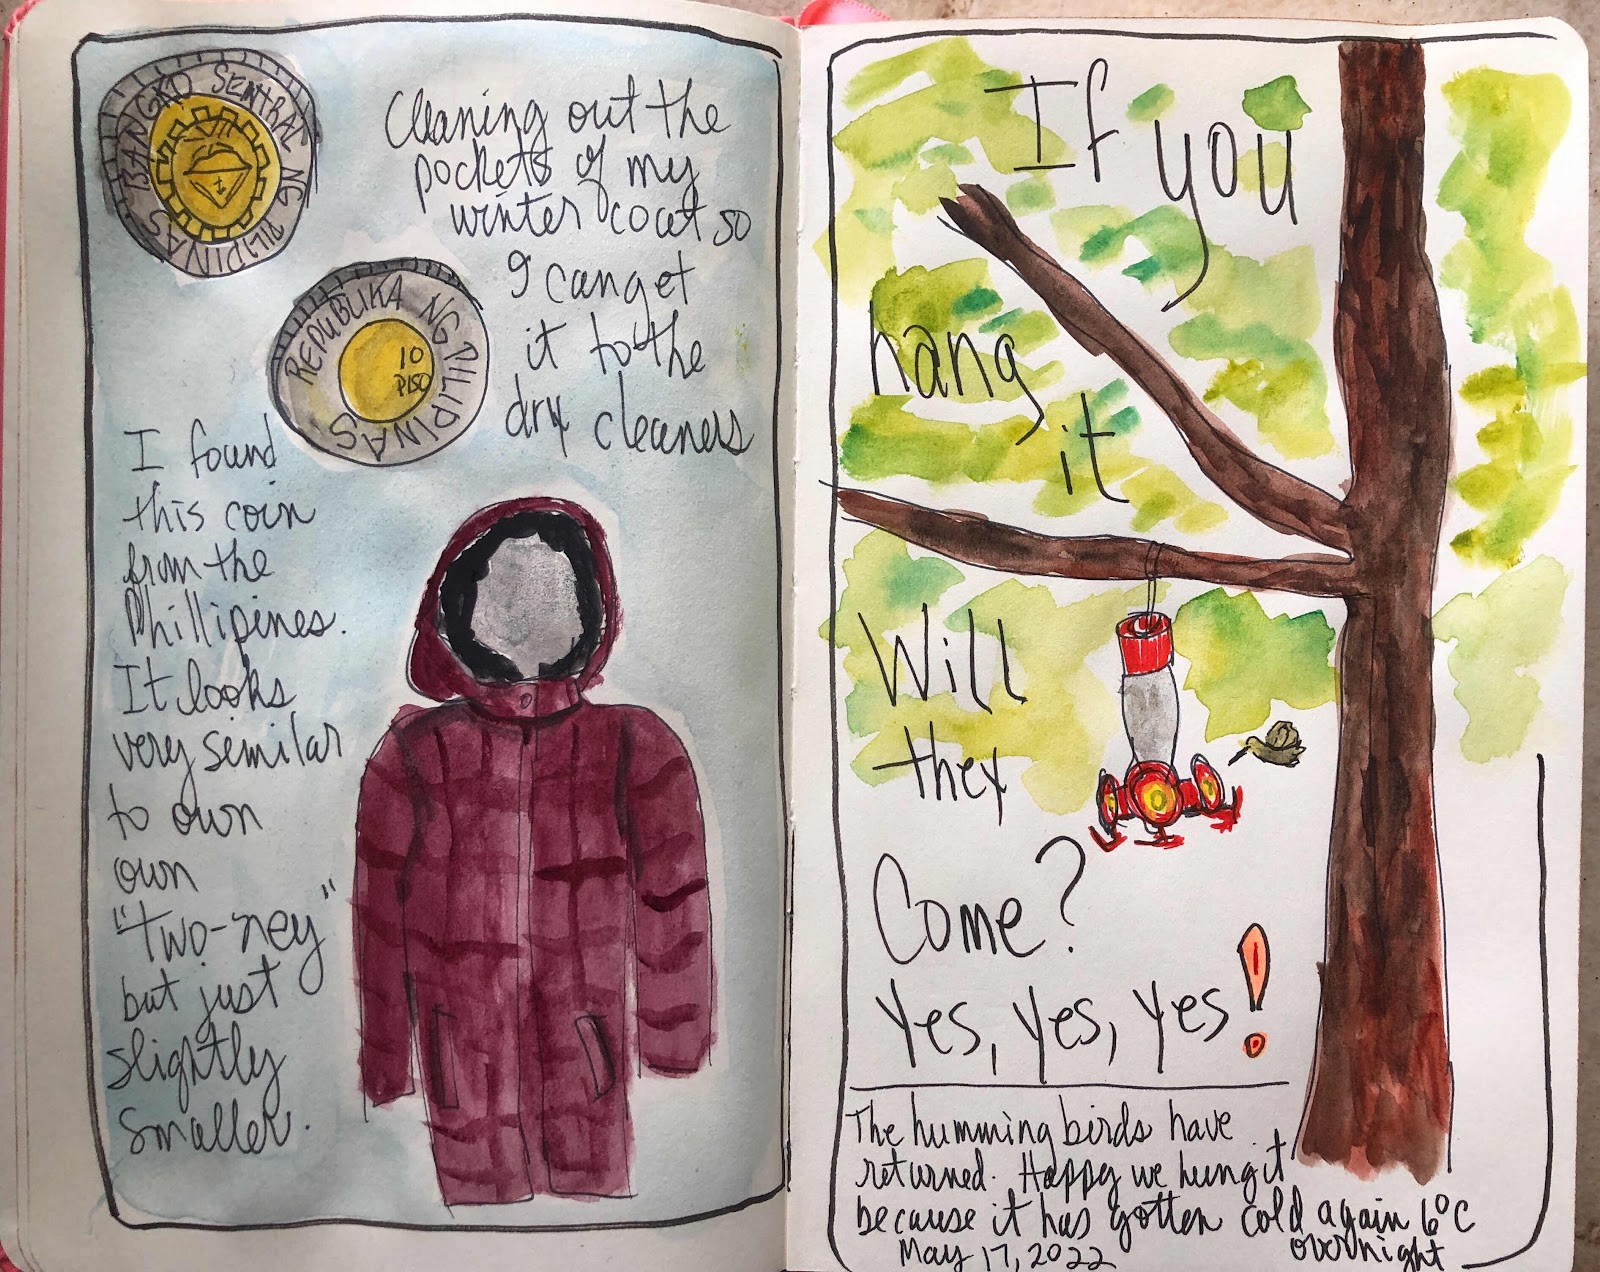 BANGKO SENTRAL NG PILIPINAS
REPUBLIKA NG PILIPINAS
10
PISO
Cleaning out the
pockets of my
winter coat so
I can get
it to the
dry cleaners
I found
this coin
from the
Phillipines.
It looks
very similar
to own
own
"two-ney"
but just
slightly
smaller.
If you
hang
it
Will
they
Come?
Yes, yes, yes!
The humming birds have
returned. Happy we hung it
because it has gotten cold again 6°C
overnight
May 17, 2022